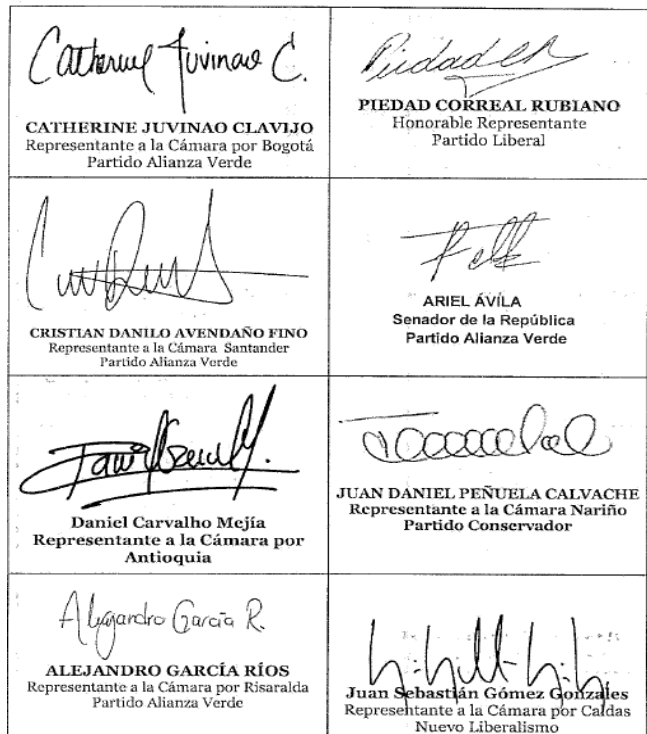 Catherine Juvinao C.
CATHERINE JUVINAO CLAVIJO
Representante a la Cámara por Bogotá
Partido Alianza Verde
Piedad
PIEDAD CORREAL RUBIANO
Honorable Representante
Partido Liberal
CRISTIAN DANILO AVENDAÑO FINO
Representante a la Cámara Santander
Partido Alianza Verde
ARIEL ÁVILA
Senador de la República
Partido Alianza Verde
Daniel Carvalho Mejía
Representante a la Cámara por
Antioquia
JUAN DANIEL PEÑUELA CALVACHE
Representante a la Cámara Nariño
Partido Conservador
Alejandro García R.
ALEJANDRO GARCÍA RÍOS
Representante a la Cámara por Risaralda
Partido Alianza Verde
Juan Sebastián Gómez Gonzales
Representante a la Cámara por Caldas
Nuevo Liberalismo